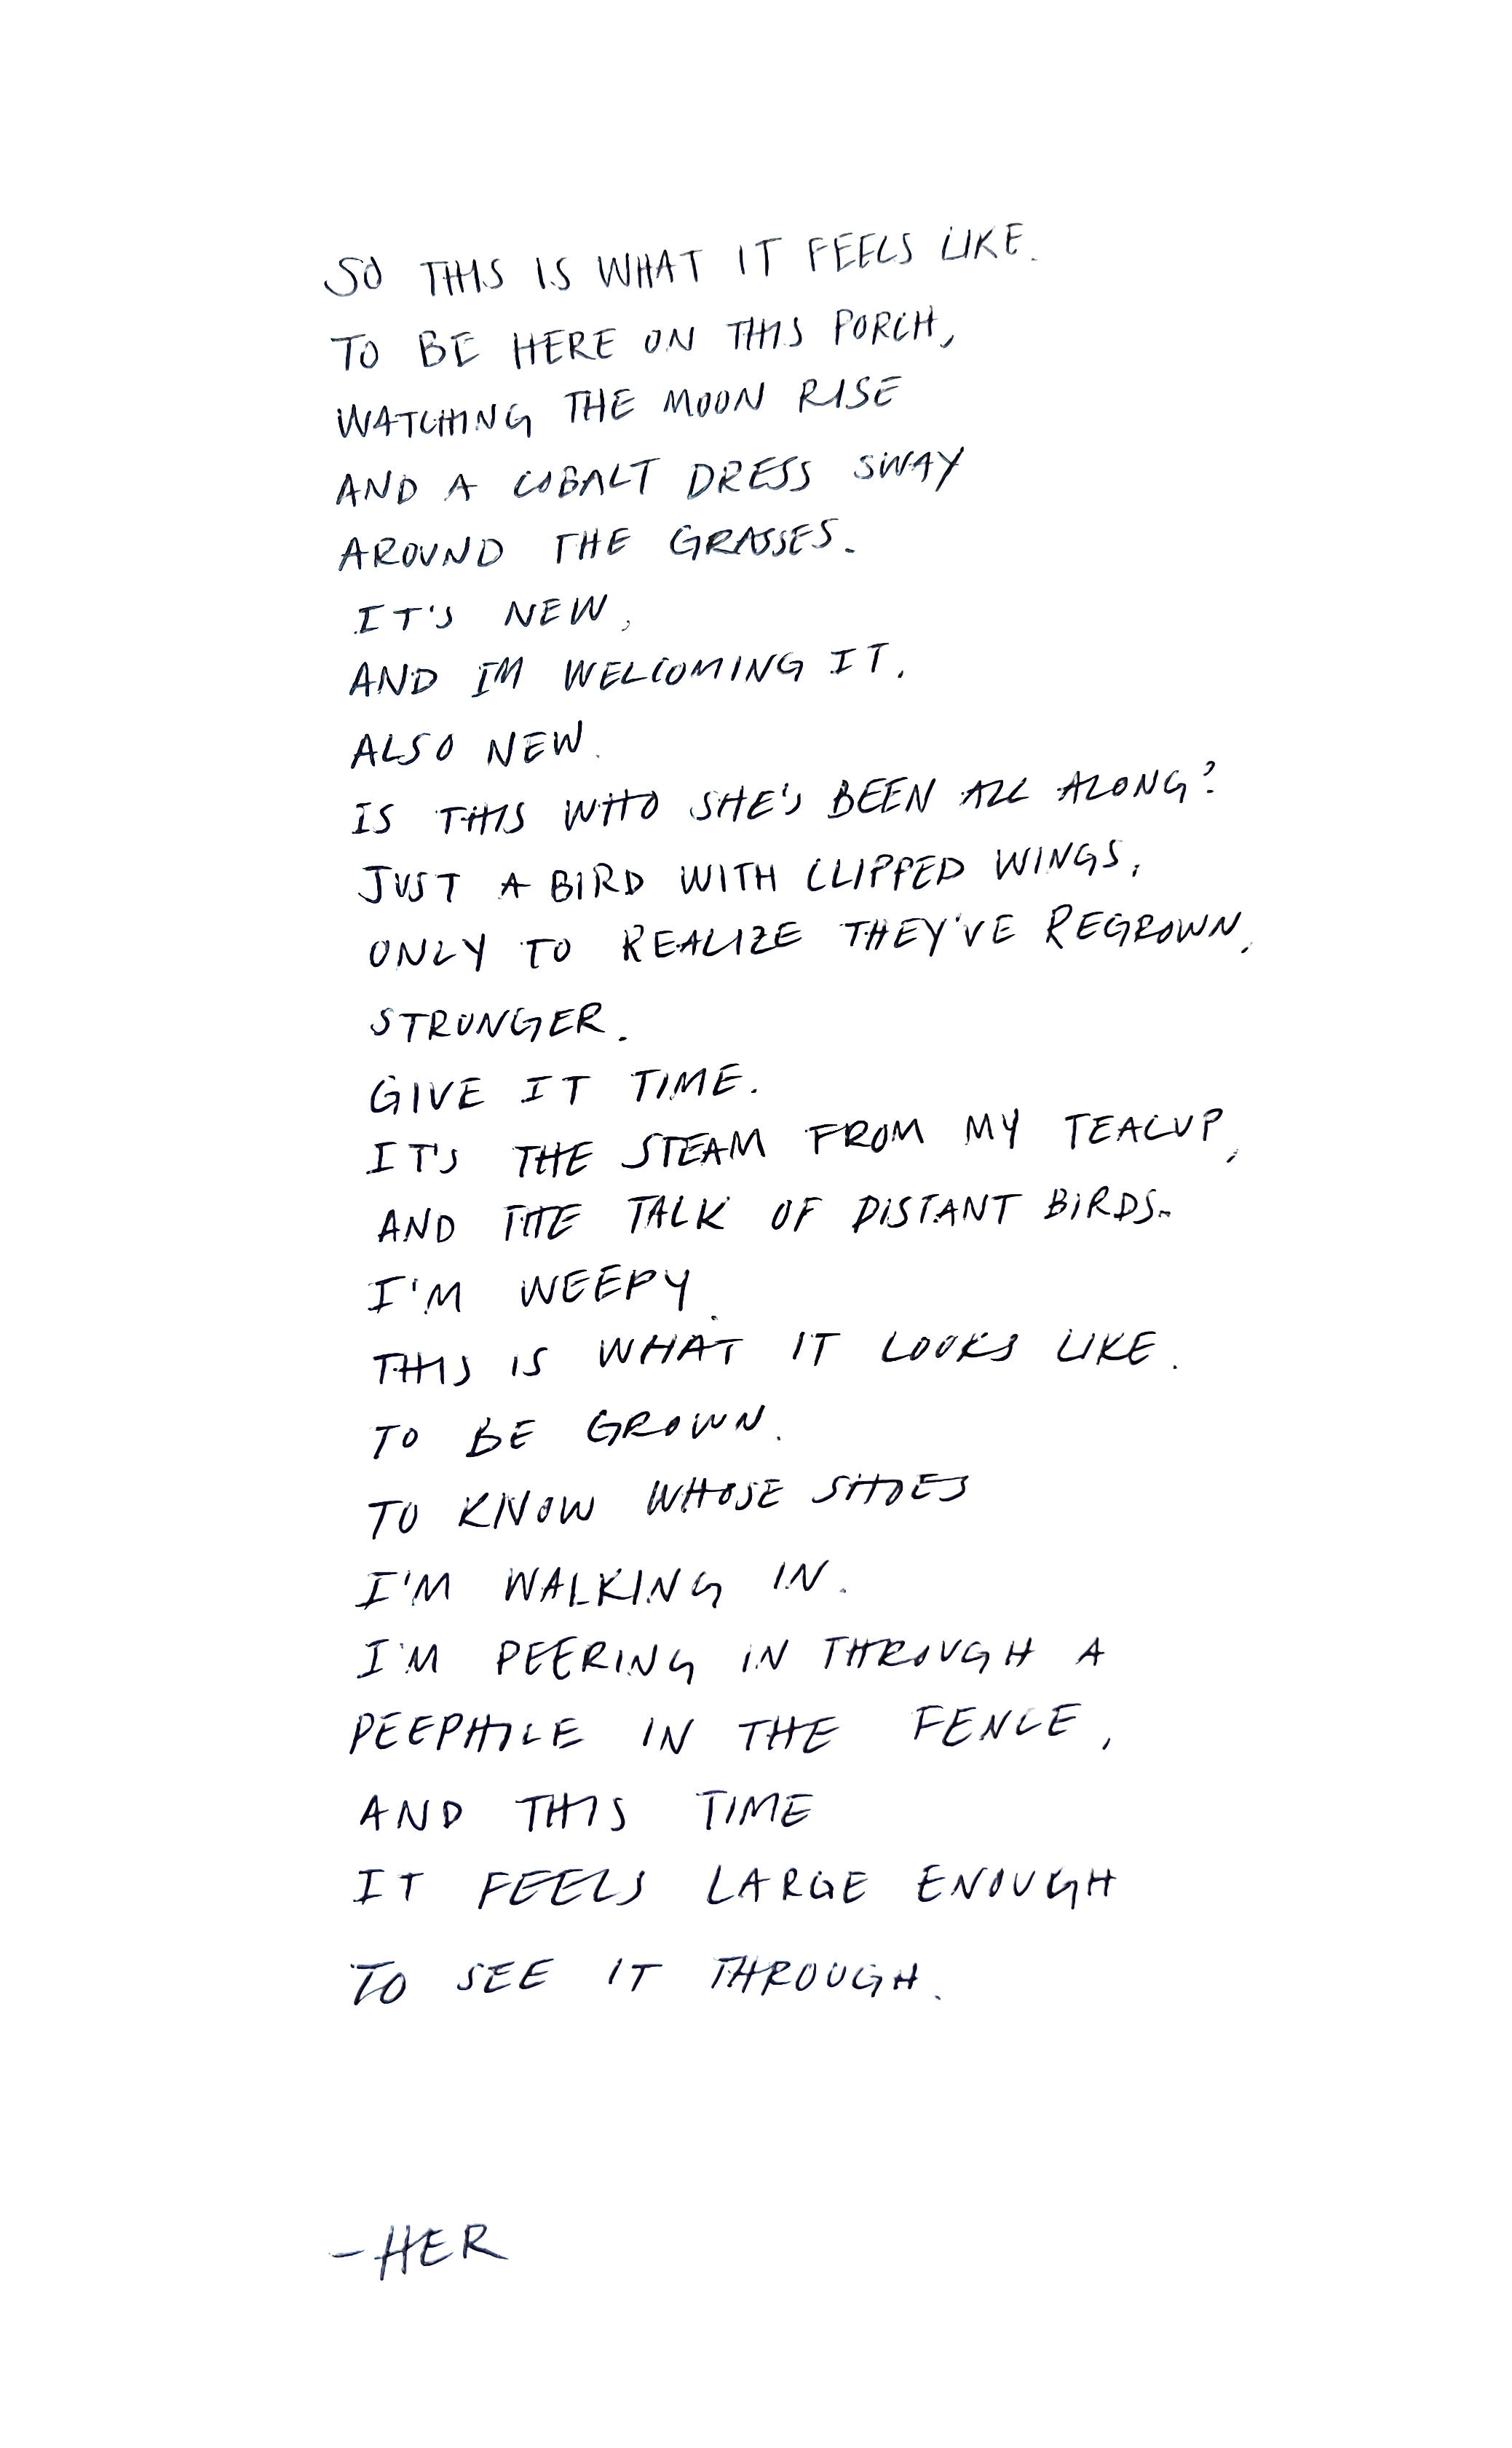 SO THIS IS WHAT IT FEELS LIKE.
TO BE HERE ON THIS PORCH,
WATCHING THE MOON RISE
AND A COBALT DRESS SWAY
AROUND THE GRASSES.
IT'S NEW,
AND I'M WELCOMING IT.
ALSO NEW.
IS THIS WHO SHE'S BEEN ALL ALONG?
JUST A BIRD WITH CLIPPED WINGS,
ONLY TO REALIZE THEY'VE REGROWN,
STRONGER.
GIVE IT TIME.
IT'S THE STEAM FROM MY TEACUP,
AND THE TALK OF DISTANT BIRDS.
I'M WEEPY.
THIS IS WHAT IT LOOKS LIKE.
TO BE GROWN.
TO KNOW WHOSE SHOES
I'M WALKING IN.
I'M PEERING IN THROUGH A
PEEPHOLE IN THE FENCE,
AND THIS TIME
IT FEELS LARGE ENOUGH
TO SEE IT THROUGH.
-HER